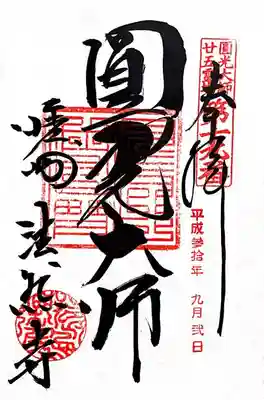 奉拝
圓光大師
廿五霊場
第十九番
平成参拾年 九月弐日
圓光大師
嵯峨 法然寺